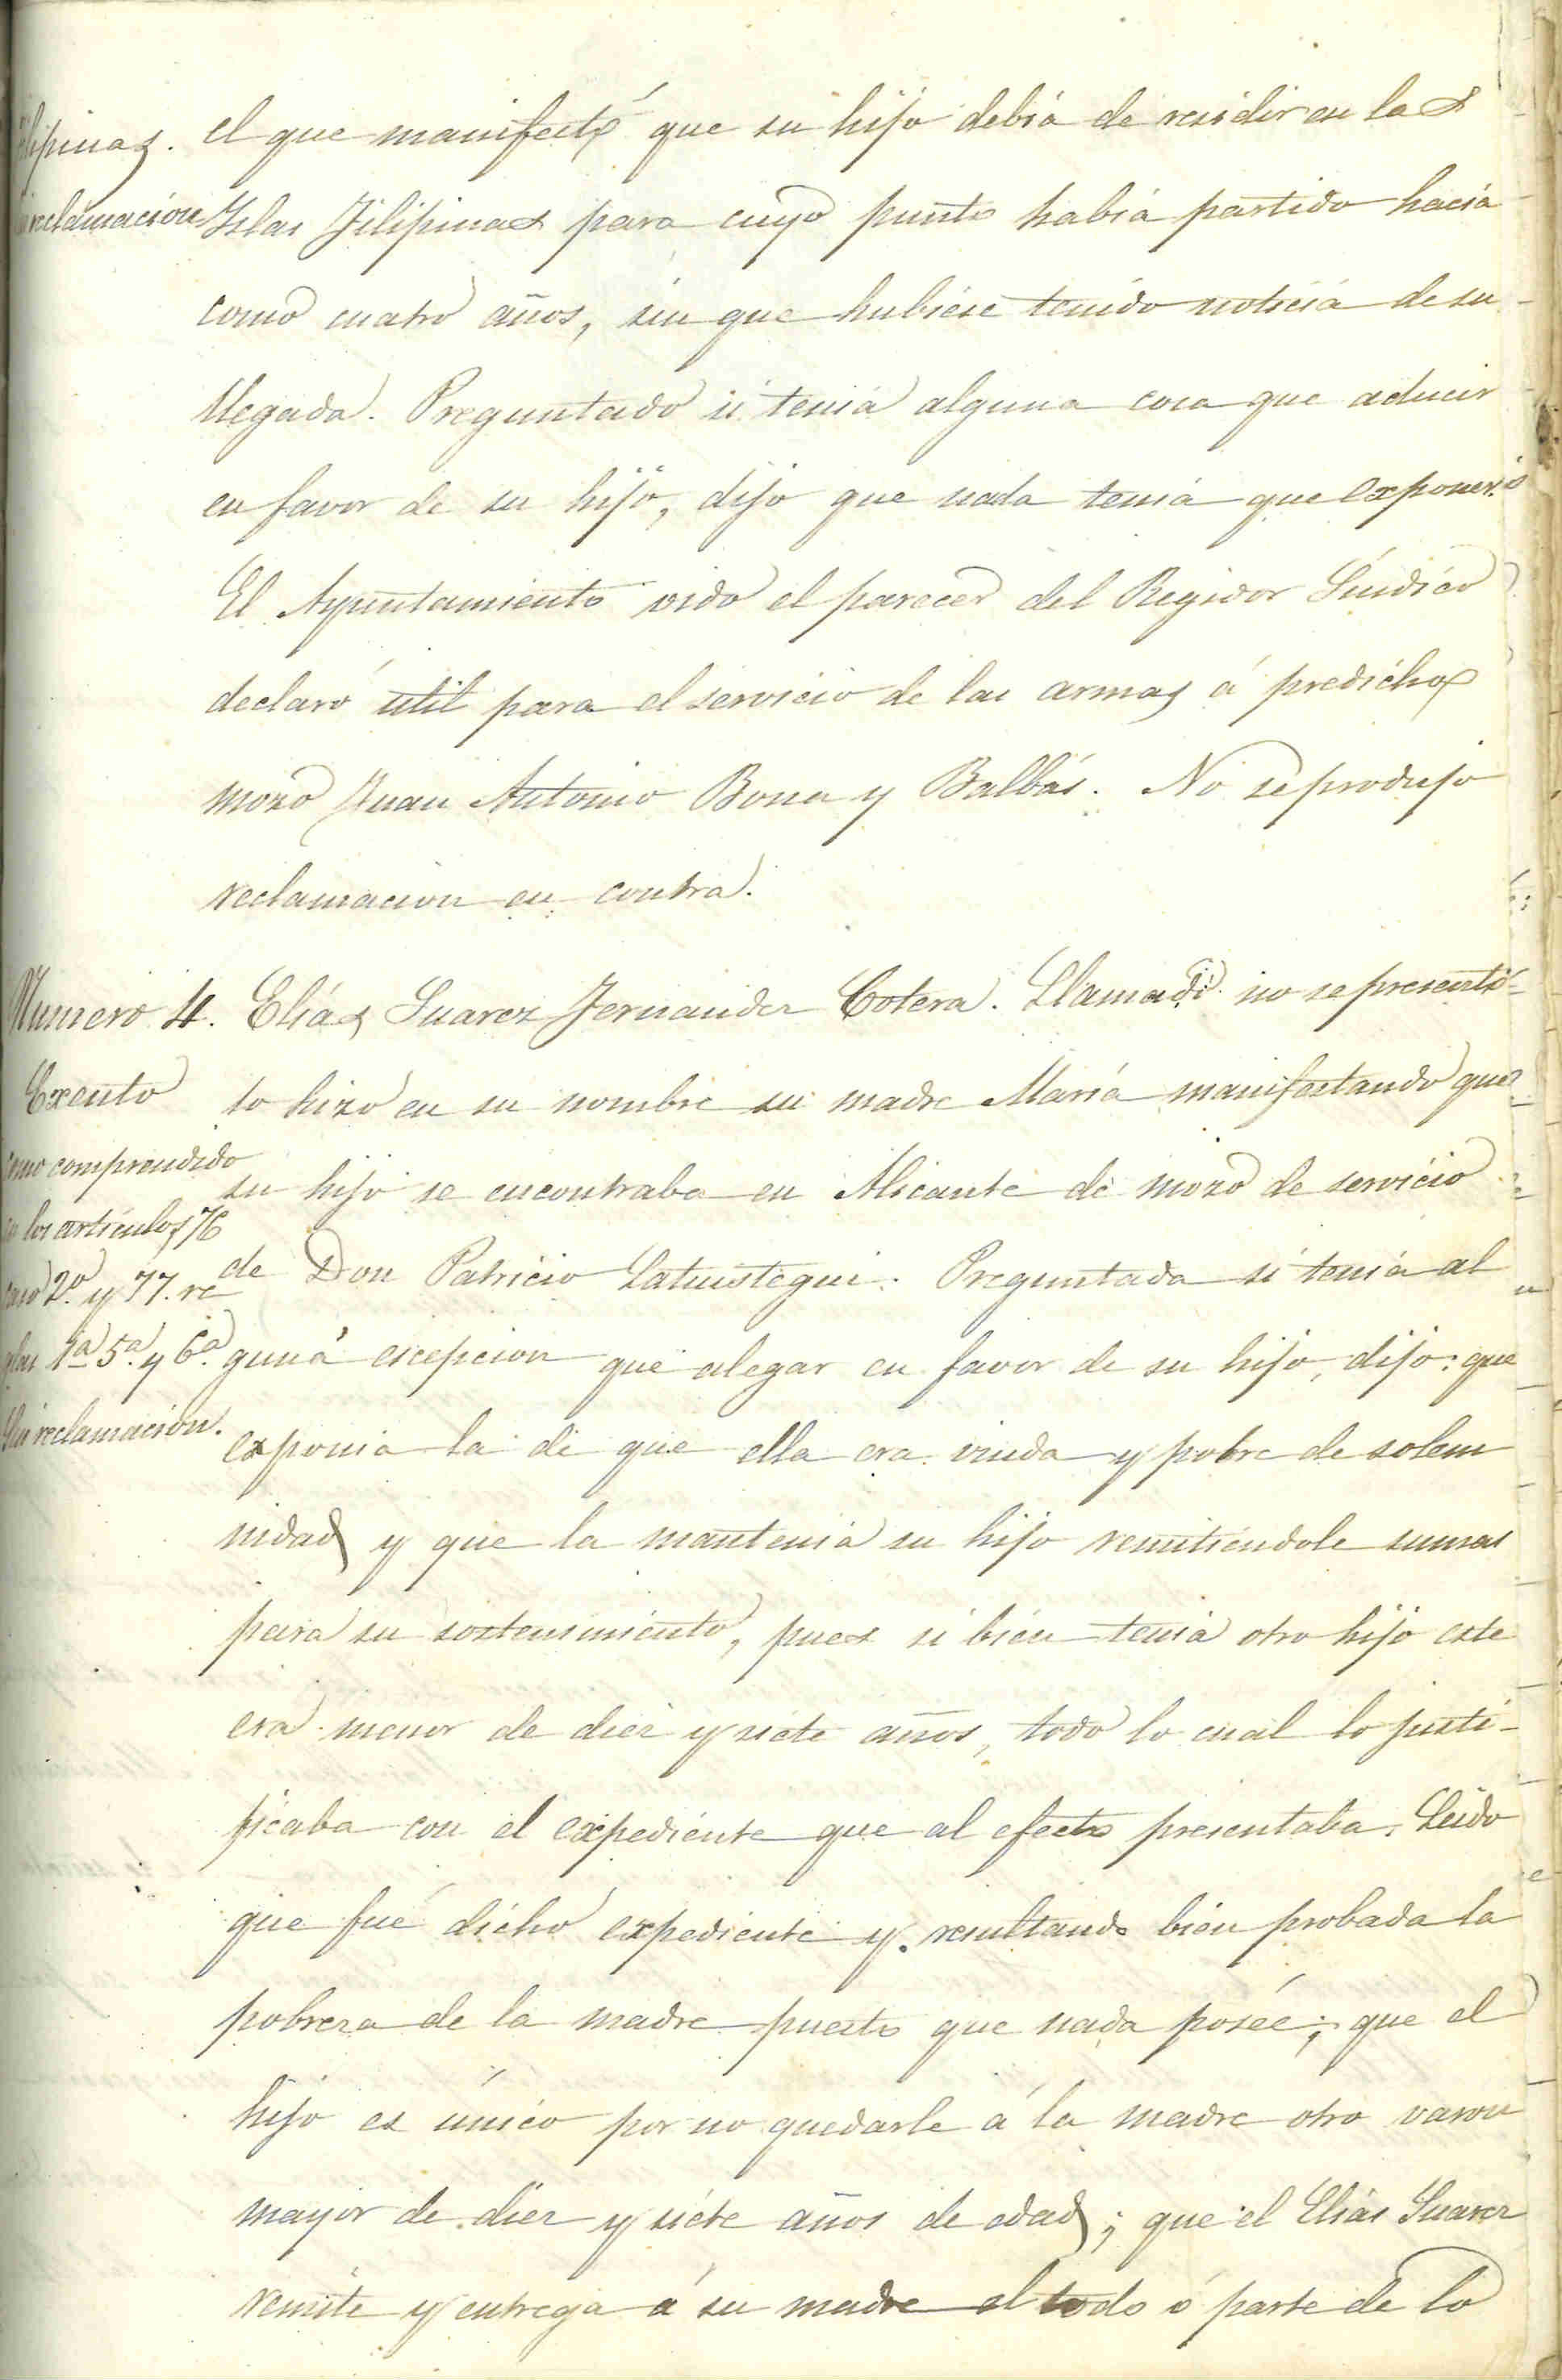 Filipinas.
sin reclamacion
el que manifestó que su hijo debia de residir en las
Islas Filipinas para cuyo punto habia partido hacia
como cuatro años, sin que hubiese tenido noticia de su
llegada. Preguntado si tenia alguna cosa que aducir
en favor de su hijo, dijo que nada tenia que exponer.
El Ayuntamiento oido el parecer del Regidor Síndico
declaró útil para el servicio de las armas á predicho
mozo Juan Antonio Bona y Balbás. No se produjo
reclamacion en contra.
Numero 4.
Exento
como comprendido
en los artículos 76
caso 2º. y 77. re
glas 1ª 5ª. y 6ª.
Sin reclamación.
Elías Suarez Fernandez Cotera. Llamado no se presentó
lo hizo en su nombre su madre María manifestando que
su hijo se encontraba en Alicante de mozo de servicio
de Don Patricio Satrustegui. Preguntada si tenia al
guna escepcion que alegar en favor de su hijo, dijo: que
exponia la de que ella era viuda y pobre de solem
nidad y que la mantenia su hijo remitiéndole sumas
para su sostenimiento, pues si bien tenia otro hijo este
era menor de diez y siete años, todo lo cual lo justi-
ficaba con el expediente que al efecto presentaba. Leido
que fué dicho expediente y resultando bien probada la
pobreza de la madre puesto que nada posée; que el
hijo es único por no quedarle á la madre otro varon
mayor de diez y siete años de edad; que el Elías Suarez
remite y entrega á su madre el todo ó parte de lo